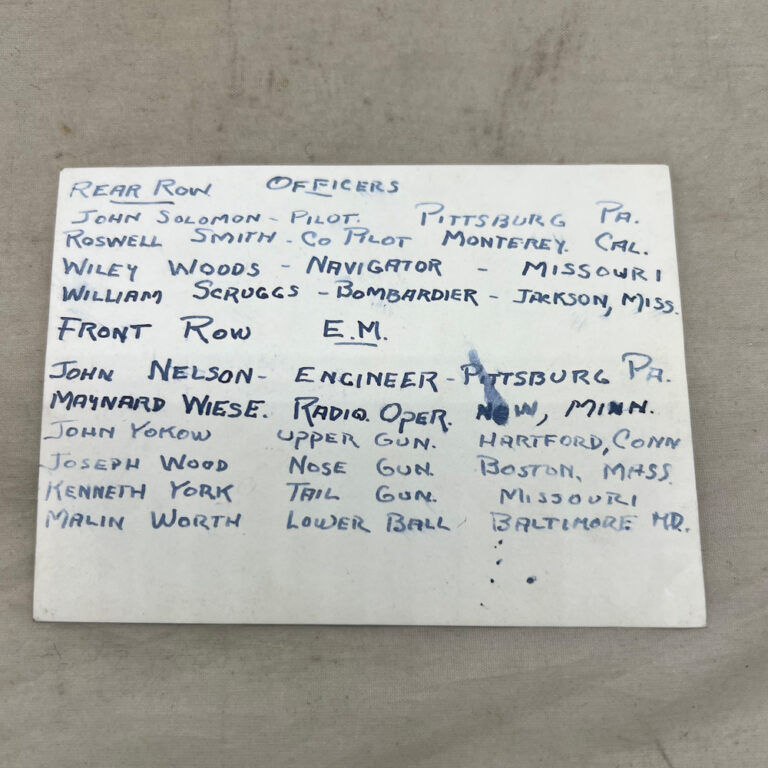 REAR ROW OFFICERS
JOHN SOLOMON - PILOT. PITTSBURG PA.
ROSWELL SMITH - CO PILOT MONTEREY. CAL.
WILEY WOODS - NAVIGATOR - MISSOURI
WILLIAM SCRUGGS - BOMBARDIER - JACKSON, MISS.
FRONT ROW E.M.
JOHN NELSON - ENGINEER - PITTSBURG PA.
MAYNARD WIESE. RADIO. OPER. MINN.
JOHN YOKOW UPPER GUN. HARTFORD, CONN
JOSEPH WOOD NOSE GUN. BOSTON, MASS.
KENNETH YORK TAIL GUN. MISSOURI
MALIN WORTH LOWER BALL BALTIMORE MD.